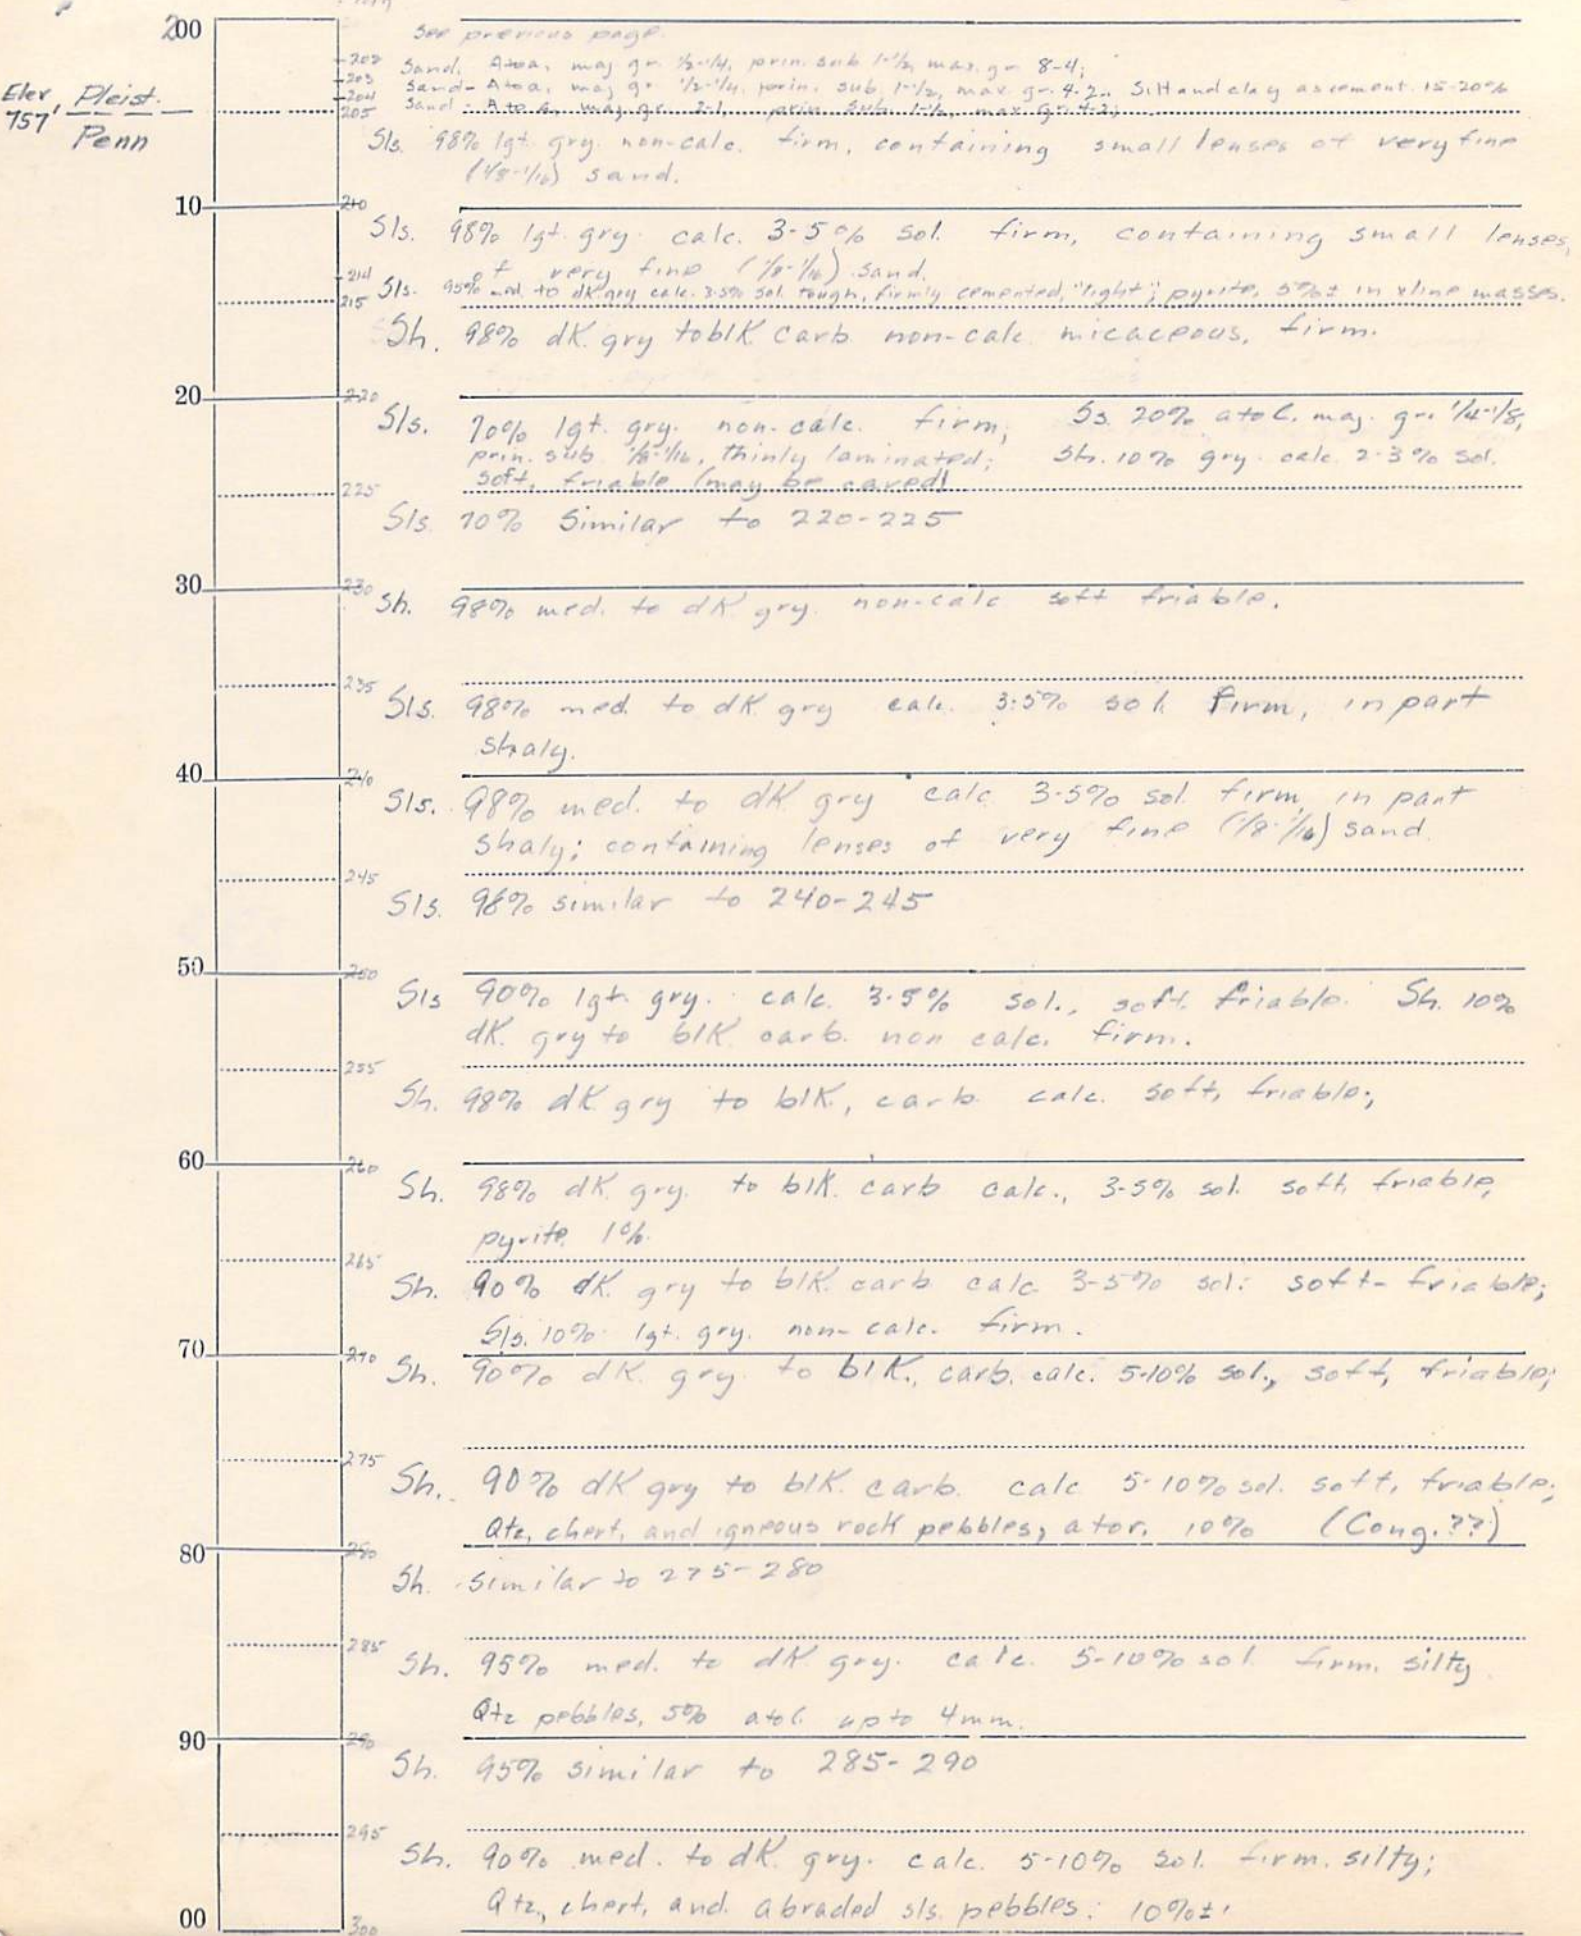 200
See previous page.
202 Sand. A to a, maj gr. 1/2-1/4, prin. sub 1-1/2, max. gr 8-4;
203 Sand- A to a, maj gr. 1/2-1/4, prin. sub. 1-1/2, max. gr. 4-2.. Silt and clay as cement. 15-20%
204
Elev. 757' Pleist. Penn
205 Sand- A to a, maj gr. 2-1, prin sub. 1-1/2, max gr. 4-2;
Sls. 98% lgt gry. non-calc. firm, containing small lenses of very fine
(1/8-1/16) sand.
10 210
Sls. 98% lgt. gry. calc. 3-5% sol. firm, containing small lenses,
of very fine (1/8-1/16) sand.
214 Sls. 95% med. to dk gry calc. 3-5% sol. tough, firmly cemented, "tight"; pyrite, 5%± in xline masses.
215
Sh. 98% dk. gry to blk carb. non-calc. micaceous, firm.
20 220
Sls. 70% lgt. gry. non-calc. firm; Ss. 20% a to c. maj. gr. 1/4-1/8,
prin. sub 1/8-1/16, thinly laminated; Sh. 10% gry. calc. 2-3% sol.
soft, friable (may be caved)
225
Sls. 70% Similar to 220-225
30 230
Sh. 98% med. to dk gry. non-calc soft friable.
235
Sls. 98% med. to dk. gry calc. 3-5% sol. firm, in part
shaly.
40 240
Sls. 98% med. to dk gry calc 3-5% sol. firm, in part
shaly; containing lenses of very fine (1/8-1/16) sand.
245
Sls. 96% similar to 240-245
50 250
Sls 90% lgt. gry. calc. 3-5% sol., soft. friable. Sh. 10%
dk. gry to blk carb. non calc. firm.
255
Sh. 98% dk. gry to blk., carb. calc. soft, friable;
60 260
Sh. 98% dk. gry. to blk. carb calc., 3-5% sol. soft, friable,
pyrite, 1%.
265
Sh. 90% dk. gry to blk. carb calc. 3-5% sol: soft- friable;
Sls. 10% lgt. gry. non-calc. firm.
70 270
Sh. 90% dk. gry. to blk., carb. calc. 5-10% sol., soft, friable;
275
Sh. 90% dk gry to blk. carb. calc 5-10% sol. soft, friable;
Qtz, chert, and igneous rock pebbles, a to r, 10% (Cong.??)
80 280
Sh. similar to 275-280
285
Sh. 95% med. to dk gry. calc. 5-10% sol. firm. silty
Qtz pebbles, 5% a to c. up to 4mm.
90 290
Sh. 95% similar to 285-290
295
Sh. 90% med. to dk. gry. calc. 5-10% sol. firm. silty;
Qtz., chert, and abraded sls. pebbles. 10%±.
00 300